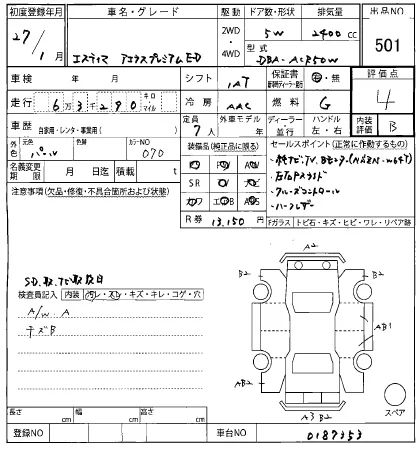 初度登録年月 車名・グレード 駆動 ドア数・形状 排気量 出品NO
27/1月 エスティマ アエラスプレミアムED 2WD・4WD 5W 2400cc 501
型式 DBA-ACR50W
車検 年 月 シフト IAT 保証書 有・無 評価点 4
走行 6万3千290 キロ・マイル 冷房 AAC 燃料 G
車歴 自家用・レンタ・事業用( ) 定員 7人 外車モデル 年 ディーラー・並行 ハンドル 左・右 内装評価 B
外色 元色 パール 色替 カラーNO 070
名義変更期限 月 日迄 積載 t
装備品(純正品に限る)
SR ナビ
カワ エアB ABS
R券 13,150円
セールスポイント(正常に動作するもの)
・純ナビTV、Bモニター(NSZN-W64T)
・左右Pスライド
・クルーズコントロール
・ハーフレザー
Fガラス トビ石・キズ・ヒビ・ワレ・リペア跡
注意事項(欠品・修復・不具合箇所および状態)
検査員記入 内装 汚レ・スレ・キズ・キレ・コゲ・穴
A/W A
キズB
A2
B2
B2
AB1
AB2
B2
A3 B2
スペア
長さ cm 幅 cm 高さ cm
登録NO 車台NO 0187353